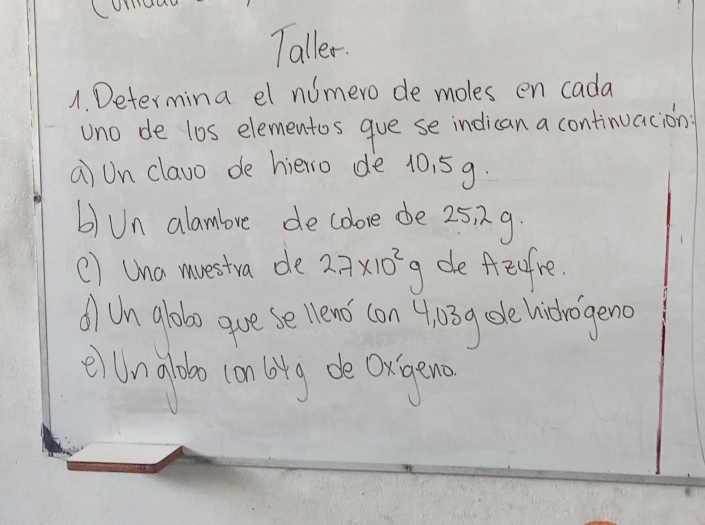 Taller.
1. Determina el número de moles en cada
uno de los elementos que se indican a continuación:
a) Un clavo de hierro de 10,5 g.
b) Un alambre de cobre de 25,2 g.
c) Una muestra de 2.7x10² g de Azufre.
d) Un globo que se llenó con 4,03g de hidrógeno
e) Un globo con 64g de Oxígeno.